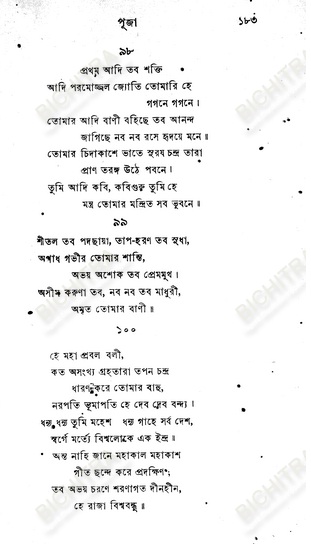 পূজা ১৮৩
৯৮
প্রথম আদি তব শক্তি
আদি পরমোজ্জ্বল জ্যোতি তোমারি হে
গগনে গগনে।
তোমার আদি বাণী বহিছে তব আনন্দ
জাগিছে নব নব রসে হৃদয়ে মনে॥
তোমার চিদাকাশে ভাতে সূরয চন্দ্র তারা
প্রাণ তরঙ্গ উঠে পবনে।
তুমি আদি কবি, কবিগুরু তুমি হে
মন্ত্র তোমার মন্দ্রিত সব ভুবনে॥
৯৯
শীতল তব পদছায়া, তাপ-হরণ তব সুধা,
অগাধ গভীর তোমার শান্তি,
অভয় অশোক তব প্রেমমুখ।
অসীম করুণা তব, নব নব তব মাধুরী,
অমৃত তোমার বাণী॥
১০০
হে মহা প্রবল বলী,
কত অসংখ্য গ্রহতারা তপন চন্দ্র
ধারণ করে তোমার বাহু,
নরপতি ভূমাপতি হে দেব বন্দ্য।
ধন্য ধন্য তুমি মহেশ ধন্য গাহে সর্ব দেশ,
স্বর্গে মর্ত্যে বিশ্বলোকে এক ইন্দ্র॥
অন্ত নাহি জানে মহাকাল মহাকাশ
গীত ছন্দে করে প্রদক্ষিণ;
তব অভয় চরণে শরণাগত দীনহীন,
হে রাজা বিশ্ববন্ধু॥
BICHITRA